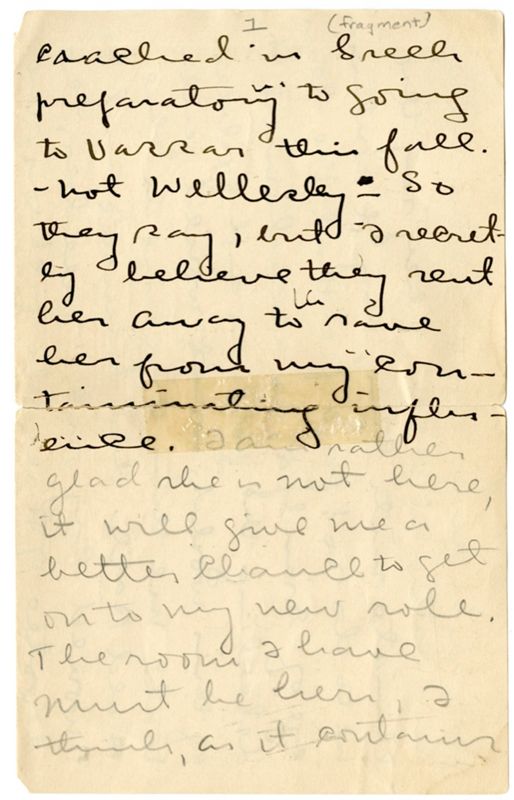 1 (fragment)
coached in Greek
preparatory to going
to Vassar this fall.
- not Wellesley - So
they say, but I secret-
ly believe they sent
her away to save
her from my con-
taminating influ-
ence. I am rather
glad she is not here,
it will give me a
better chance to get
onto my new role.
The room I have
must be hers, I
think, as it contains